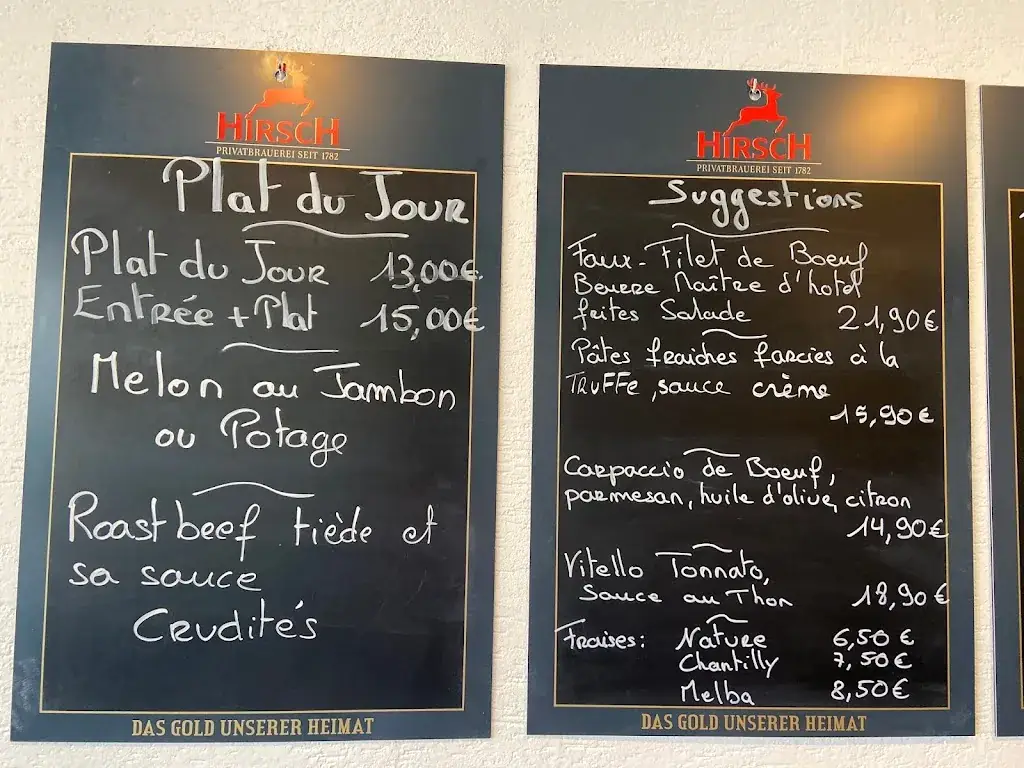 HIRSCH
PRIVATBRAUEREI SEIT 1782
Plat du Jour
Plat du Jour 13,00€
Entrée + Plat 15,00€
Melon au Jambon
ou Potage
Roast beef tiède et
sa sauce
Crudités
DAS GOLD UNSERER HEIMAT
HIRSCH
PRIVATBRAUEREI SEIT 1782
Suggestions
Faux-Filet de Boeuf
Beurre Maître d'hotel
frites Salade 21,90€
Pâtes fraiches farcies à la
Truffe, sauce crème
15,90€
Carpaccio de Boeuf,
parmesan, huile d'olive, citron
14,90€
Vitello Tonnato,
Sauce au Thon 18,90€
Fraises: Nature 6,50€
Chantilly 7,50€
Melba 8,50€
DAS GOLD UNSERER HEIMAT